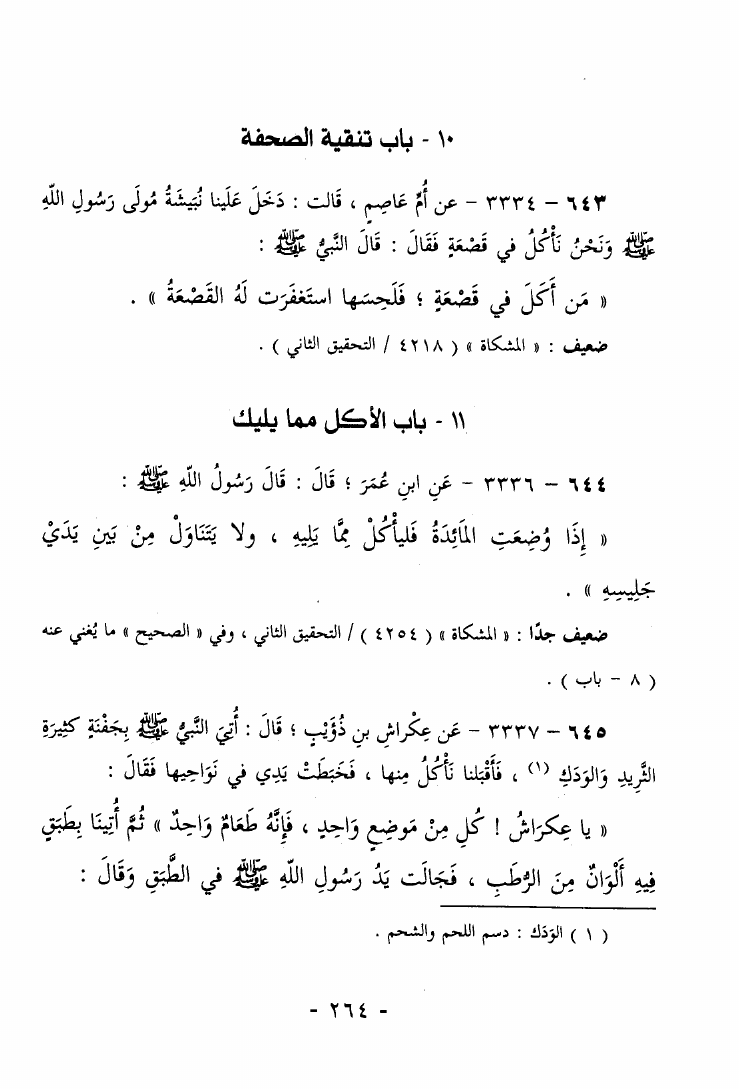 ١٠ - باب تنقية الصحفة
٦٤٣ – ٣٣٣٤ – عن أُمِّ عَاصِمٍ ، قالت : دَخَلَ عَلَينا نُبَيشَةُ مُولَى رَسُولِ اللَّهِ
ﷺ وَنَحْنُ نَأْكُلُ في قَصْعَةٍ فَقَالَ : قَالَ النَّبيُّ ﷺ :
« مَن أَكَلَ في قَصْعَةٍ ؛ فَلَحِسَها استَغفَرَت لَهُ القَصْعَةُ » .
ضعيف : « المشكاة » ( ٤٢١٨ / التحقيق الثاني ) .
١١ - باب الأكل مما يليك
٦٤٤ – ٣٣٣٦ – عَنِ ابنِ عُمَرَ ؛ قَالَ : قَالَ رَسُولُ اللَّهِ ﷺ :
« إِذَا وُضِعَتِ المَائِدَةُ فَليأْكُلْ مِمَّا يَلِيهِ ، ولا يَتَنَاوَلْ مِنْ بَينِ يَدَيْ
جَلِيسِهِ » .
ضعيف جدًا : « المشكاة » ( ٤٢٥٤ ) / التحقيق الثاني ، وفي « الصحيح » ما يُغني عنه
( ٨ – باب ) .
٦٤٥ – ٣٣٣٧ – عَن عِكْراشِ بنِ ذُؤَيْبٍ ؛ قَالَ : أُتِيَ النَّبيُّ ﷺ بِجَفْنَةٍ كَثِيرَةِ
الثَّرِيدِ وَالوَدَكِ (١) ، فَأَقْبَلنا نَأْكُلُ مِنها ، فَخَبَطَتْ يَدِي في نَوَاحِيها فَقَالَ :
« يا عِكرَاشُ ! كُلِ مِنْ مَوضِعٍ وَاحِدٍ ، فَإِنَّهُ طَعَامٌ وَاحِدٌ » ثُمَّ أُتِينَا بِطَبَقٍ
فِيهِ أَلْوَانٌ مِنَ الرُّطَبِ ، فَجَالَت يَدُ رَسُولِ اللَّهِ ﷺ في الطَّبَقِ وَقَالَ :
( ١ ) الوَدَك : دسم اللحم والشحم .
- ٢٦٤ -